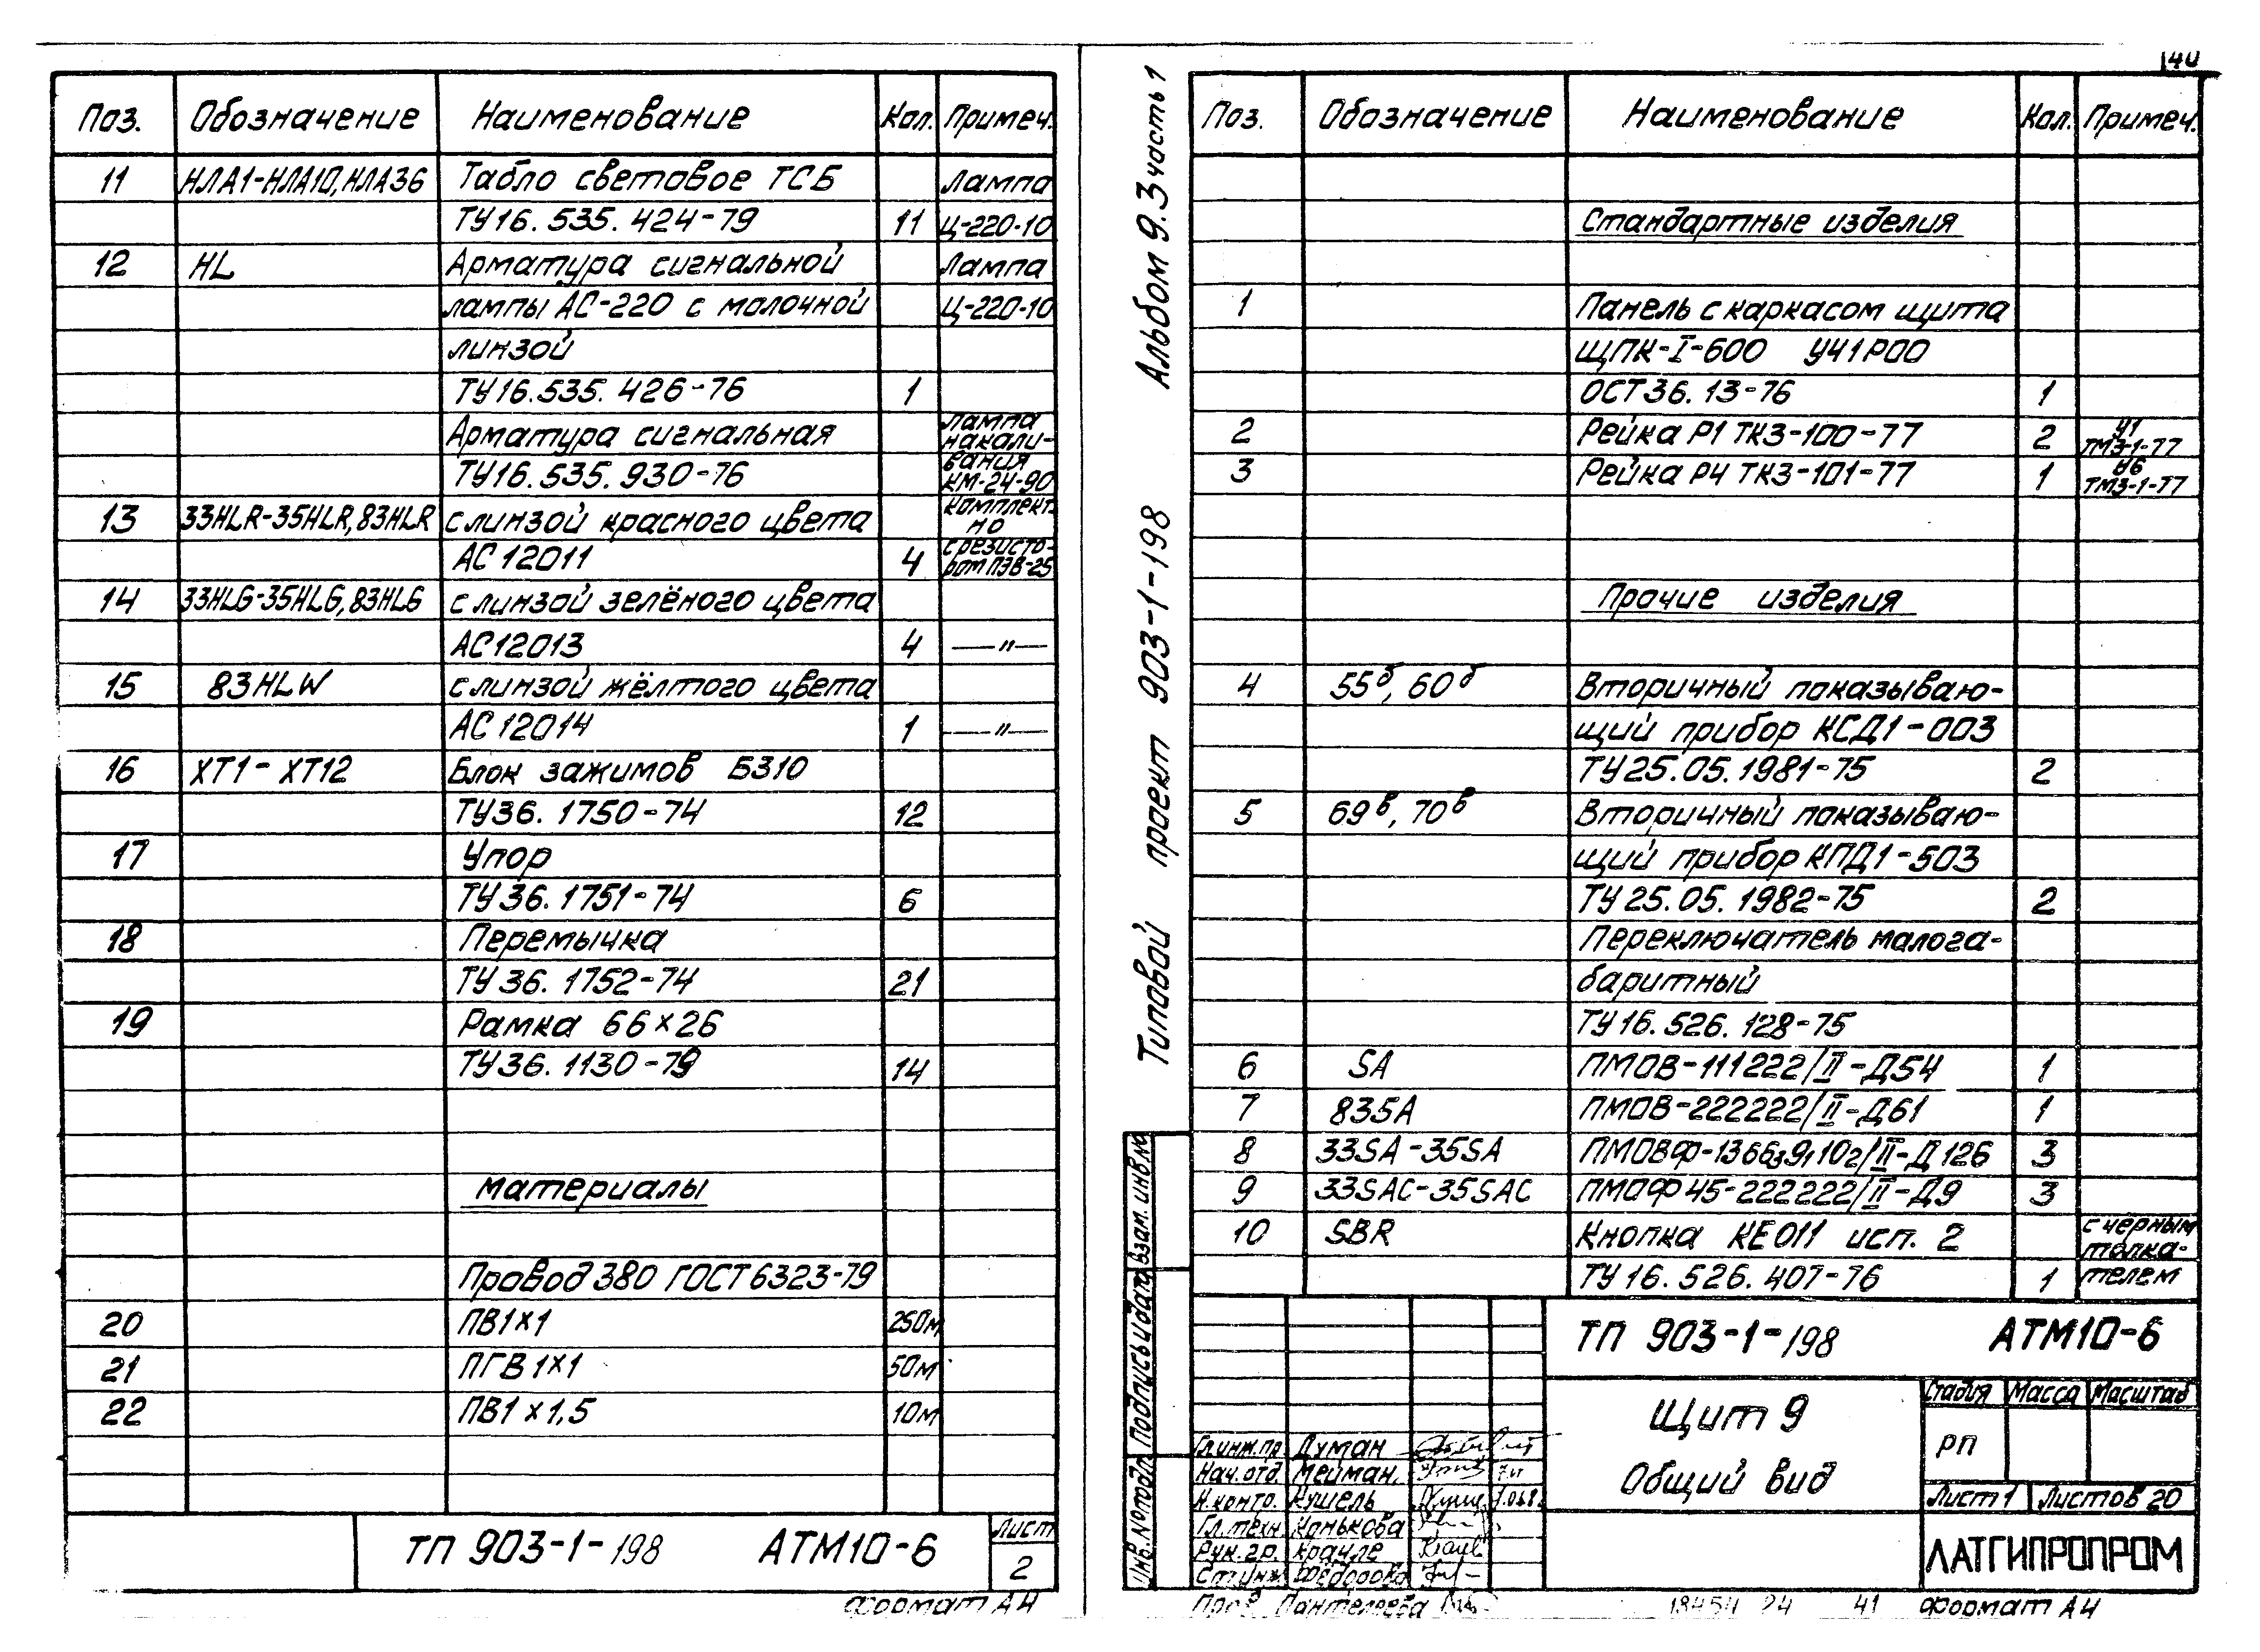 Поз. Обозначение Наименование Кол. Примеч.
11 НЛА1-НЛА10, НЛА36 Табло световое ТСБ Лампа
ТУ16.535.424-79 11 Ц-220-10
12 HL Арматура сигнальной Лампа
лампы АС-220 с молочной Ц-220-10
линзой
ТУ16.535.426-76 1
Арматура сигнальная лампа накали-
ТУ16.535.930-76 вания КМ-24-90
13 33HLR-35HLR, 83HLR с линзой красного цвета комплект-но
АС 12011 4 с резисто-ром ПЭВ-25
14 33HLG-35HLG, 83HLG с линзой зелёного цвета
АС12013 4 —"—
15 83HLW с линзой жёлтого цвета
АС 12014 1 —"—
16 ХТ1-ХТ12 Блок зажимов БЗ10
ТУ36.1750-74 12
17 Упор
ТУ36.1751-74 6
18 Перемычка
ТУ36.1752-74 21
19 Рамка 66×26
ТУ36.1130-79 14
Материалы
Провод 380 ГОСТ 6323-79
20 ПВ1×1 250м
21 ПГВ1×1 50м
22 ПВ1×1,5 10м
ТП 903-1-198 АТМ10-6 Лист
2
Формат А4
Типовой проект 903-1-198 Альбом 9.3 часть 1
140
Поз. Обозначение Наименование Кол. Примеч.
Стандартные изделия
1 Панель с каркасом щита
ЩПК-I-600 У41Р00
ОСТ36.13-76 1
2 Рейка Р1 ТК3-100-77 2 У1 ТМ3-1-77
3 Рейка Р4 ТК3-101-77 1 У6 ТМ3-1-77
Прочие изделия
4 55б, 60б Вторичный показываю-
щий прибор КСД1-003
ТУ25.05.1981-75 2
5 69в, 70в Вторичный показываю-
щий прибор КПД1-503
ТУ25.05.1982-75 2
Переключатель малога-
баритный
ТУ16.526.128-75
6 SA ПМОВ-111222/II-Д54 1
7 83SA ПМОВ-222222/II-Д61 1
8 33SA-35SA ПМОВФ-1366₃9₁10₂/II-Д126 3
9 33SAC-35SAC ПМОФ45-222222/II-Д9 3
10 SBR Кнопка КЕ011 исп. 2 с чёрным толка-
ТУ16.526.407-76 1 телем
Инв.№подл. Подпись и дата Взам.инв.№
ТП 903-1-198 АТМ10-6
Щит 9
Общий вид
Стадия Масса Масштаб
РП
Лист 1 Листов 20
ЛАТГИПРОПРОМ
Гл.инж.пр Думан
Нач.отд. Мейман
Н.контр. Кушель
Гл.техн. Конькова
Рук.гр. Крауле
Ст.инж. Федорова
Пров Пантелеева
18454 24 41 Формат А4